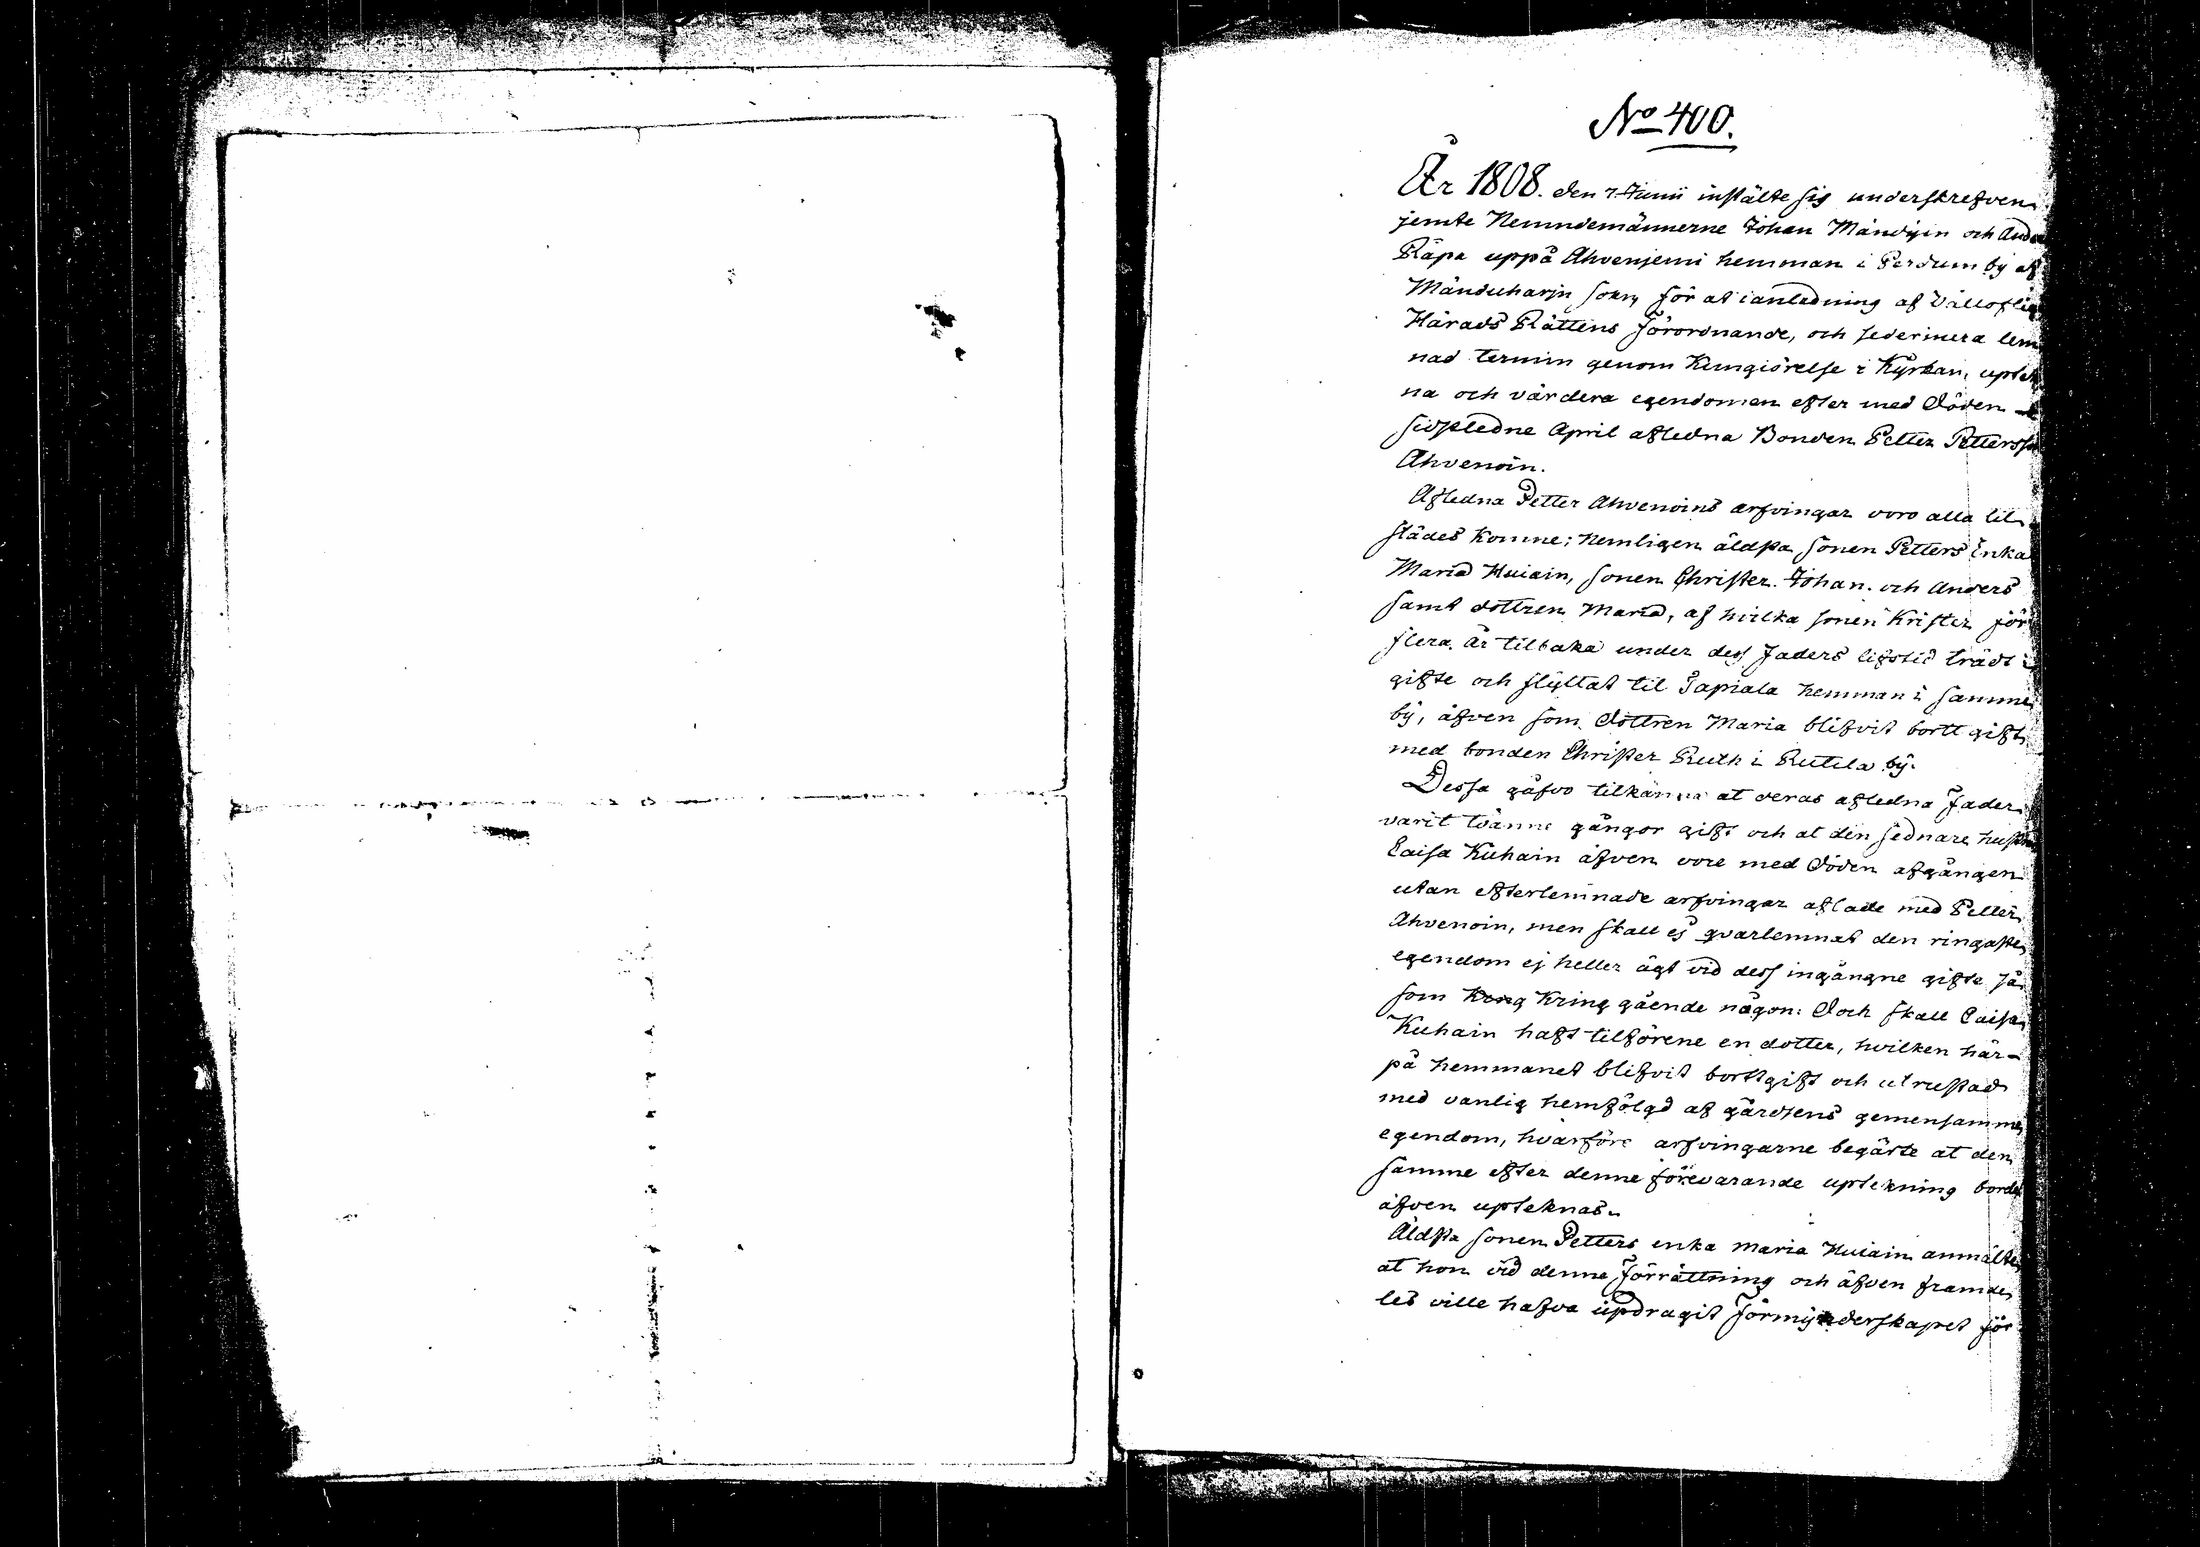 No 400.
År 1808. den 7. Junii instälte sig underskrefven
jemte Nemndemännerne Johan Mändyin och
Räpa uppå Ahvenjemi hemman i Perdum by af
Mänduharju sokn för at i anledning af Vällofliga
Härads Rättens Förordnande, och sedermera lem
nad termin genom Kungiörelse i Kyrkan, uptek
na och värdera egendomen efter med Döden
sidstledne April afledna Bonden Petter Petterss
Ahvenoin.
Afledna Petter Ahvenoins arfvingar voro alla til
städes komne; Nemligen äldsta sonen Petters Enka
Maria Huiain, sonen Christer. Johan. och Anders
samt dottren Maria, af hvilka sonen Krister för
flera år tilbaka under dess Faders lifstid trädt i
gifte och flyttat til Tapiala hemman i samme
by, äfven som Dottren Maria blifvit bortt gift
med bonden Christer Ruth i Rutila by.
Dessa gåfvo tilkänna at deras afledna Fader
varit tvänne gångor gift och at den sednare hustru
Caisa Kuhain äfven vore med Döden afgången
utan efterlemnade arfvingar aflade med Petter
Ahvenoin, men skall ej qvarlemnat den ringaste
egendom ej heller ägt vid dess ingångne gifte så
som Kring gående någon: Doch skall Caisa
Kuhain haft tilförene en dotter, hvilken här-
på hemmanet blifvit borttgift och utrustad
med vanlig hemfölgd af gårdsens gemensamme
egendom, hvarföre arfvingarne begärte at den
samme efter denne förevarande uptekning borde
äfven upteknas.
Äldsta sonen Petters enka Maria Huiain anmälte
at hon vid denne Förrättning och äfven framde
les ville hafva updragit Förmynderskapet för